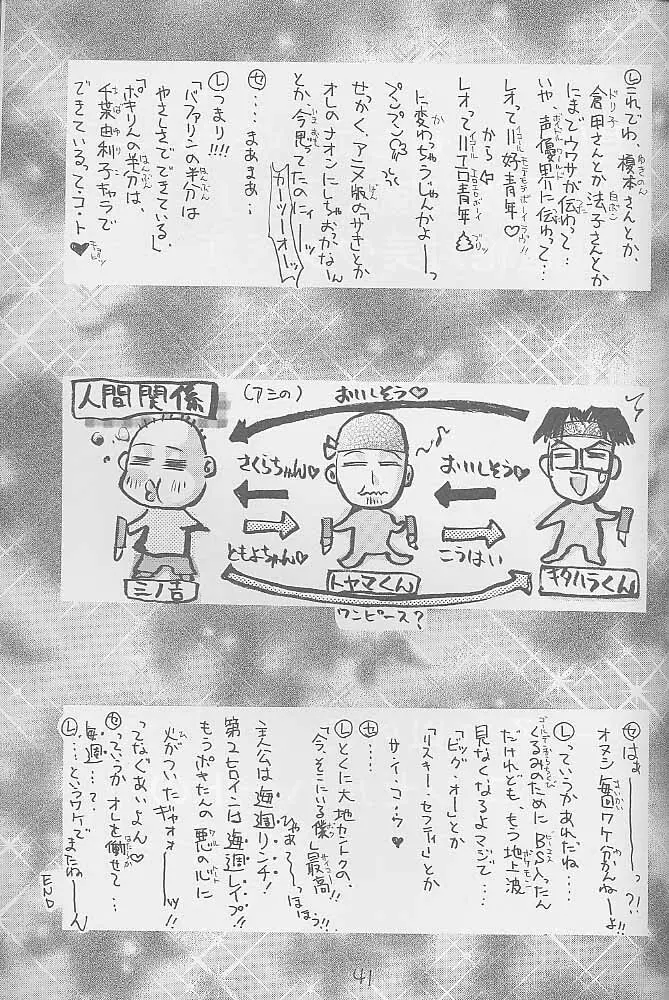 Ⓛこれでわ、榎本さんとか、
ゆきのん
倉田さんとか法子さんとか
ドリ子
白ぶー
にまでウワサが伝わって…
いや、声優界に伝わって…
レオって＝好青年♡
イコール モテモテボーイ ラヴ!!
から⇩
レオって＝エロ青年
イコール エロエロボーイ ブリッ
に変わっちゃうじゃんかよーっ
プンプン
せっかく、アニメ版の「さき」とか
オレのナオンにしちゃおっかなん
とか今思ってたのにィーッ
カーツーオーッ
㋝…まあまあ…
Ⓛつまり!!!
「バファリンの半分は
はんぶん
やさしさでできている」
「ポキりんの半分は、
はんぶん
千葉由利子キャラで
ちばゆりこ
できている」ってコ・ト♥
人間関係
(アシの)
おいしそう♡
さくらちゃん♡
おいしそう♡
ともよちゃん♡
こうはい
ミノ吉
トヤマくん
キタハラくん
ワンピース？
㋝はぁーーっ?!
オヌシ毎回ワケ分かんねーよ!!
まいかい
Ⓛっていうかあれだね…
くるみのためにBS入ったん
だけれども、もう地上波
見なくなるよマジで…
「ビッグ・オー」とか
「リスキー・セフティ」とか
サ・イ・コ・ウ♥
㋝……
Ⓛとくに大地セントクの、
「今、そこにいる僕」最高!!
サイコー
ひゃあて〜っほほう!!
主人公は毎週リンチ！
第2ヒロインは毎週レイプ!!
もうポキたんの悪の心に
火がついたギャオォーーッ!!
ってなぐあいよん♡
㋝っていうかオレを働せて…
はたらか
毎週…？
Ⓛ…というワケでまたねーーん
END
41